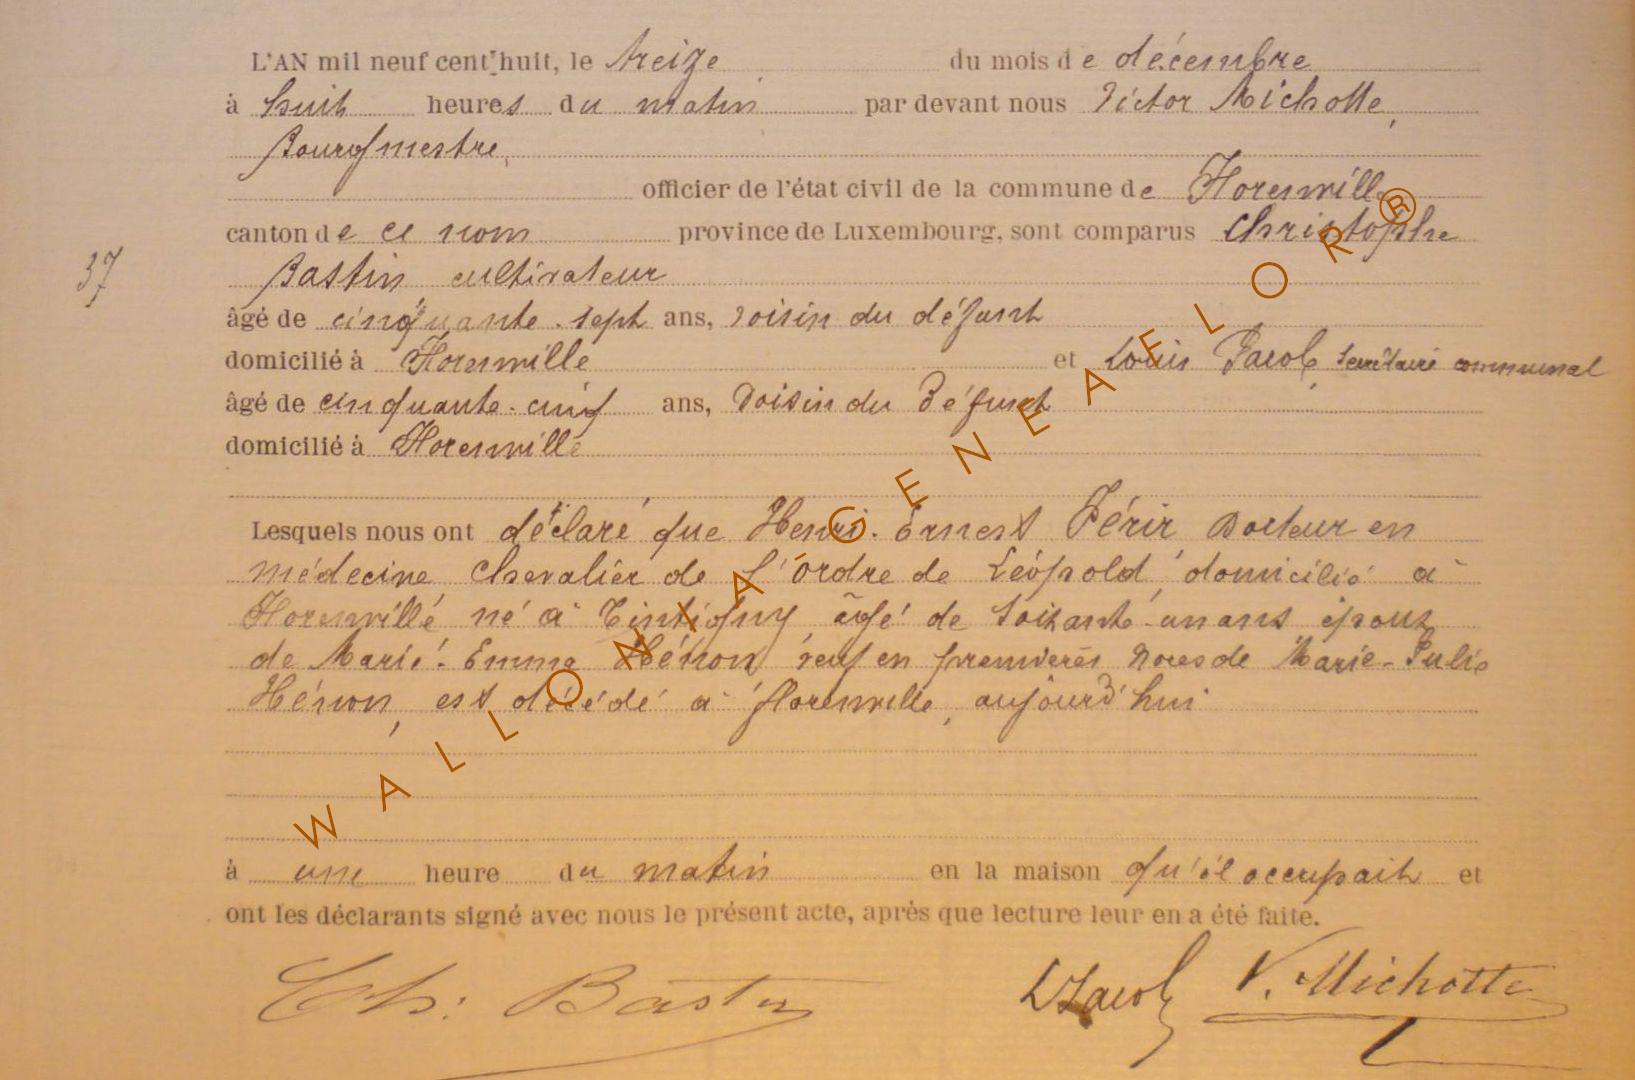 L'AN mil neuf cent huit, le treize du mois de décembre
à huit heures du matin par devant nous Victor Michotte,
Bourgmestre,
officier de l'état civil de la commune de Florenville
canton de ce nom province de Luxembourg, sont comparus Christophe
37
Bastin cultivateur
âgé de cinquante-sept ans, voisin du défunt
domicilié à Florenville et Louis Jacob, secrétaire communal
âgé de cinquante-cinq ans, voisin du défunt
domicilié à Florenville
Lesquels nous ont déclaré que Henri-Ernest Férir Docteur en
médecine, Chevalier de l'ordre de Léopold, domicilié à
Florenville né à Tintigny âgé de soixante-un ans époux
de Marie-Emma Hénon, veuf en premières noces de Marie-Julie
Hénon, est décédé à florenville, aujourd'hui
à une heure du matin en la maison qu'il occupait et
ont les déclarants signé avec nous le présent acte, après que lecture leur en a été faite.
Ch: Bastin LJacob V. Michotte
WALLONIA GENEAFLOR®